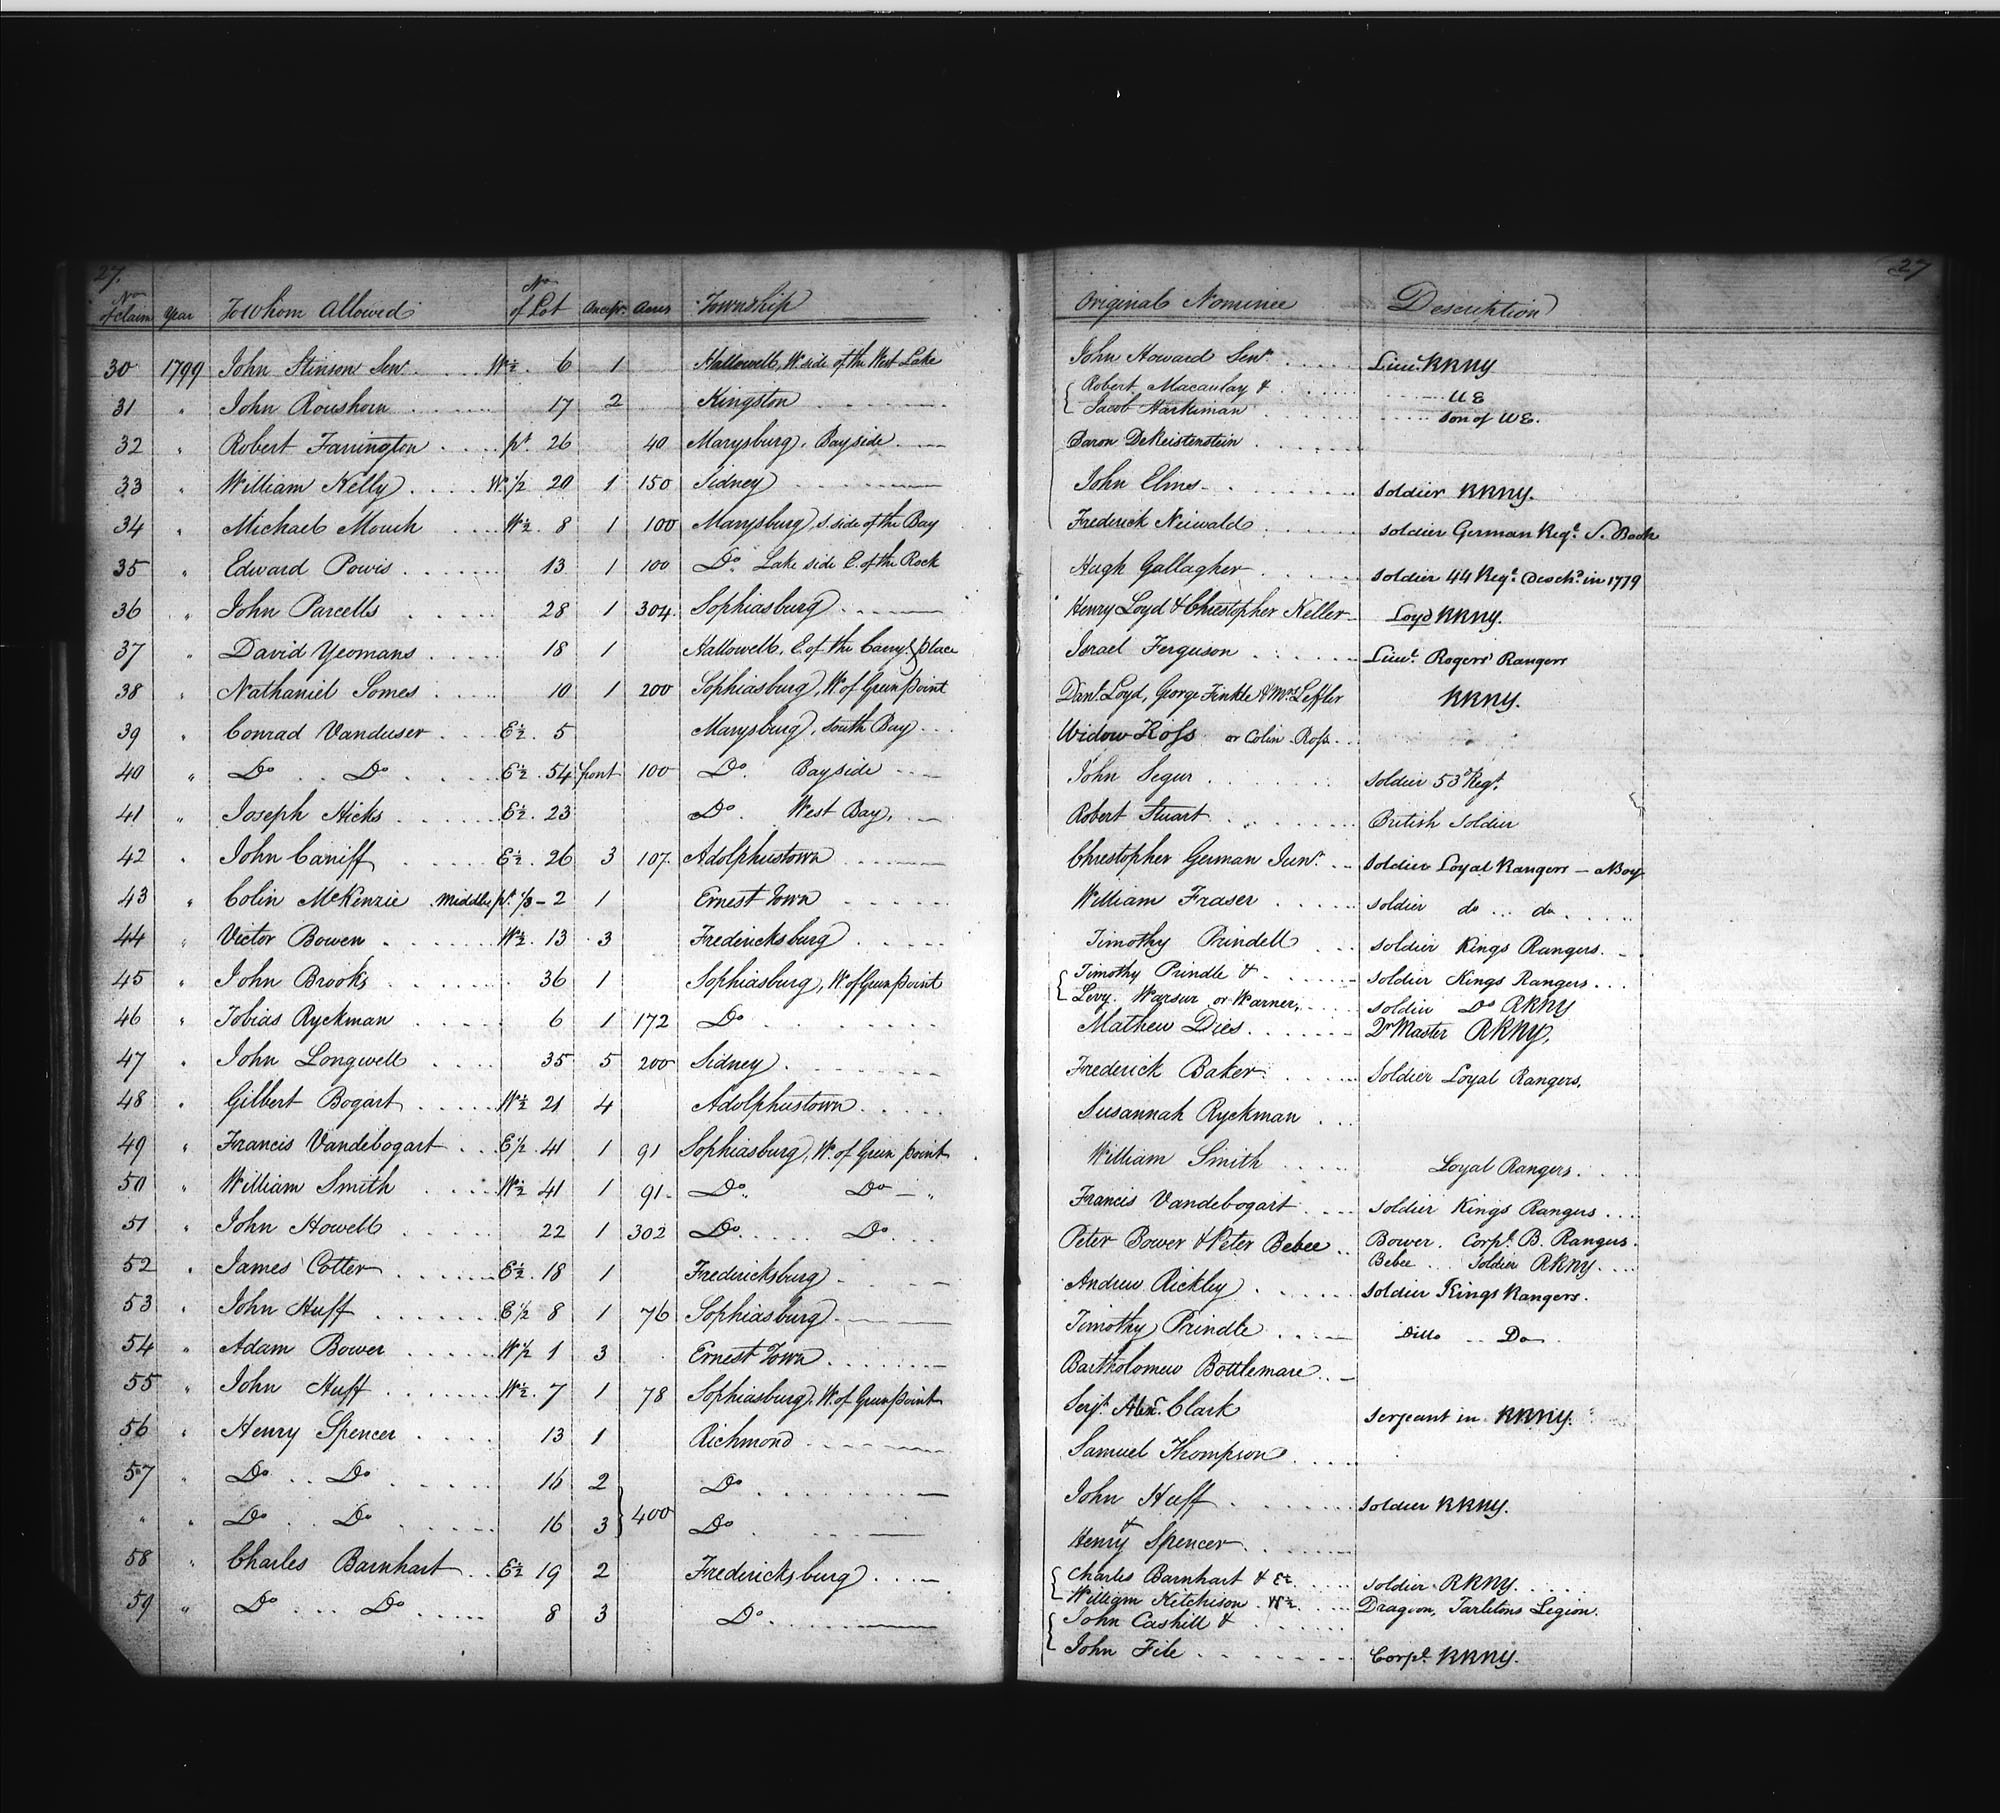 27.
No of Claim Year To Whom Allowed No of Lot Concn. Acres Township
30 1799 John Stinson Senr. W½ 6 1 Hallowell, W. side of the West Lake
31 " John Roushorn 17 2 Kingston
32 " Robert Farrington pt. 26 40 Marysburg, Bay side
33 " William Kelly W. ½ 20 1 150 Sidney
34 " Michael Mouck W½ 8 1 100 Marysburg, S. side of the Bay
35 " Edward Powis 13 1 100 Do. Lake side E. of the Rock
36 " John Parcells 28 1 304 Sophiasburg
37 " David Yeomans 18 1 Hallowell, E. of the Carry place
38 " Nathaniel Somes 10 1 200 Sophiasburg, W. of Green point
39 " Conrad Vanduser E½. 5 Marysburg, South Bay
40 " Do .. Do E½. 54 front 100 Do. Bay side
41 " Joseph Hicks E½. 23 Do. West Bay,
42 " John Caniff E½. 26 3 107. Adolphustown
43 " Colin McKenzie middle pt. ⅓ - 2 1 Ernest Town
44 " Victor Bowen W½. 13 3 Fredericksburg
45 " John Brooks 36 1 Sophiasburg, W. of Green point
46 " Tobias Ryckman 6 1 172 Do.
47 " John Longwell 35 5 200 Sidney
48 " Gilbert Bogart W½ 21 4 Adolphustown
49 " Francis Vandebogart E½. 41 1 91 Sophiasburg, W. of Green point
50 " William Smith W½ 41 1 91. Do. Do
51 " John Howell 22 1 302 Do. Do
52 " James Cotter E½. 18 1 Fredericksburg
53 " John Huff E½ 8 1 76 Sophiasburg
54 " Adam Bower W½ 1 3 Ernest Town
55 " John Huff W½. 7 1 78 Sophiasburg, W. of Green point
56 " Henry Spencer 13 1 Richmond
57 " Do .. Do 16 2 Do
" " Do .. Do 16 3 } 400 Do
58 " Charles Barnhart E½ 19 2 Fredericksburg
59 " Do ... Do 8 3 Do.
27
Original Nominee Description
John Howard Senr. Lieu. RRNY
Robert Macaulay & UE
Jacob Harkiman Son of UE.
Baron DeReistenstein
John Elms Soldier RRNY.
Frederick Neiwald Soldier German Regt. S. Book
Hugh Gallagher Soldier 44 Regt. Desch'd in 1779
Henry Loyd & Christopher Keller Loyd RRNY.
Israel Ferguson Lieut. Rogers' Rangers
Danl. Loyd, George Finkle & Mrs. Leffler RRNY.
Widow Ross or Colin Ross
John Segur Soldier 53d Regt.
Robert Stuart British Soldier
Christopher German Junr. Soldier Loyal Rangers - a Boy
William Fraser Soldier do ... do
Timothy Prindell Soldier Kings Rangers.
Timothy Prindle & Soldier Kings Rangers
Levy Warsur or Warner, Soldier Do RRNY
Mathew Dies Qr Master RRNY,
Frederick Baker Soldier Loyal Rangers.
Susannah Ryckman
William Smith Loyal Rangers
Francis Vandebogart Soldier Kings Rangers
Peter Bower & Peter Bebee Bower. Corpl. B. Rangers.
Bebee ... Soldier RRNY
Andrew Rickley Soldier Kings Rangers.
Timothy Prindle Ditto .. Do
Bartholomew Bottlemare
Serjt. Alexr. Clark Serjeant in RRNY.
Samuel Thompson
John Huff Soldier RRNY.
&
Henry Spencer
Charles Barnhart & E½ Soldier RRNY.
William Kitchison W½ Dragoon, Tarletons Legion.
John Cashill &
John File Corpl. RRNY.